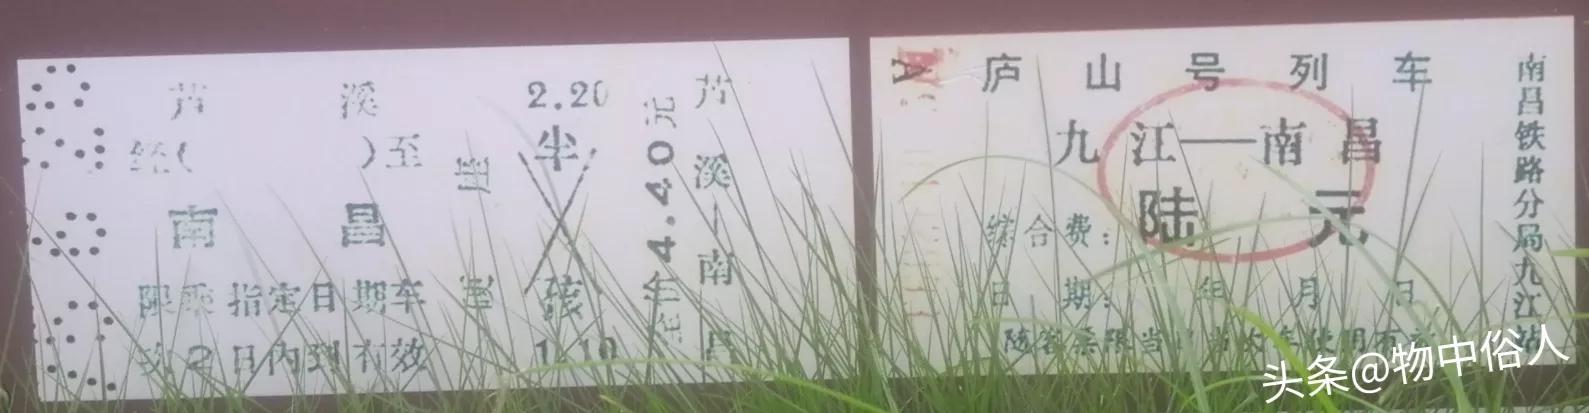 芦 溪
经( )至
南 昌
限乘指定日期车
次2日内到有效
2.20
半
孩
1.10
4.40元
芦溪—南昌
A
庐山号列车
九江——南昌
综合费：陆元
日期： 年 月 日
南昌铁路分局九江站
头条@物中俗人